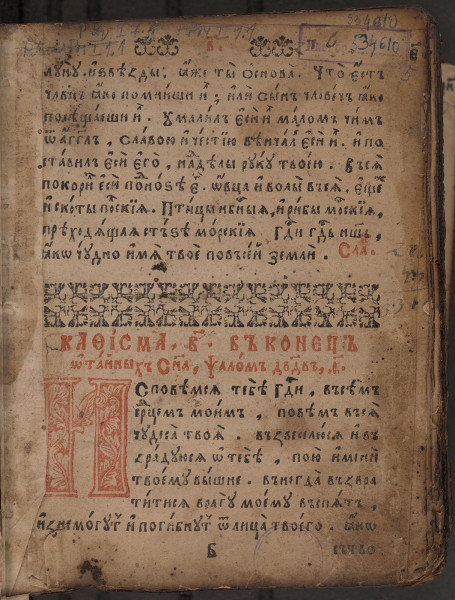 534610
534610
луну, и҆ ѕвѣзды, ꙗ҆же ты̀ ѻ҆снова̀. Что̀ е҆стъ
ꙗ҆ко помниши и҆̀; и҆лѝ сы́нъ человѣчь ꙗ҆ко
посѣща́еши и҆̀. Ѹ҆мали́лъ е҆сѝ и҆̀ ма́ломъ чимъ
ѿ а҆́гг҃лъ, сла́вою и҆ че́стїю вѣнча́лъ е҆сѝ и҆̀. и҆ по
ста́вилъ е҆сѝ е҆го̀, над̾ дѣлы̀ рꙋкꙋ̀ твое́ю. въсѧ̀
покори́лъ е҆сѝ под̾ но́ѕѣ е҆гѡ̀. ѻ҆́вца и҆ волы̀ въсѧ̀, е҆ще́же
и҆ ско́ты по́лскїѧ. Пти́цы нб҃ныѧ, и҆ ры́бы мо́рскїѧ,
прѣходѧ́щаѧ стъѕѧ̀ мо́рскїѧ. Гд҃и гд҃ь на́шъ,
ꙗ҆кѡ чю́дно и҆́мѧ твоѐ по въсе́й землѝ. Сла́.
КАѲІ́СМА, в҃. ВЪ КОНЕЦЪ
ѡ҆ та́йныхъ сн҃а, ѱало́мъ дв҃дѡвъ, ѳ҃.
И҆сповѣ́мсѧ тебѣ̀ гд҃и, въсѣ́мъ
ср҃цемъ мои́мъ, повѣ́мъ въсѧ̀
чюдеса̀ твоѧ̀. възвеселю́сѧ и҆ въ
зра́дꙋюсѧ ѡ҆ тебѣ̀, пою̀ и҆́мени
твоемꙋ̀ вы́шнїи. вънегда̀ възвра
ти́тисѧ врагꙋ̀ моемꙋ̀ въспѧ́ть,
и҆знемо́гꙋтъ и҆ поги́бнꙋтъ ѿ лица̀ твоегѡ̀. ꙗ҆кѡ
Б
сътво